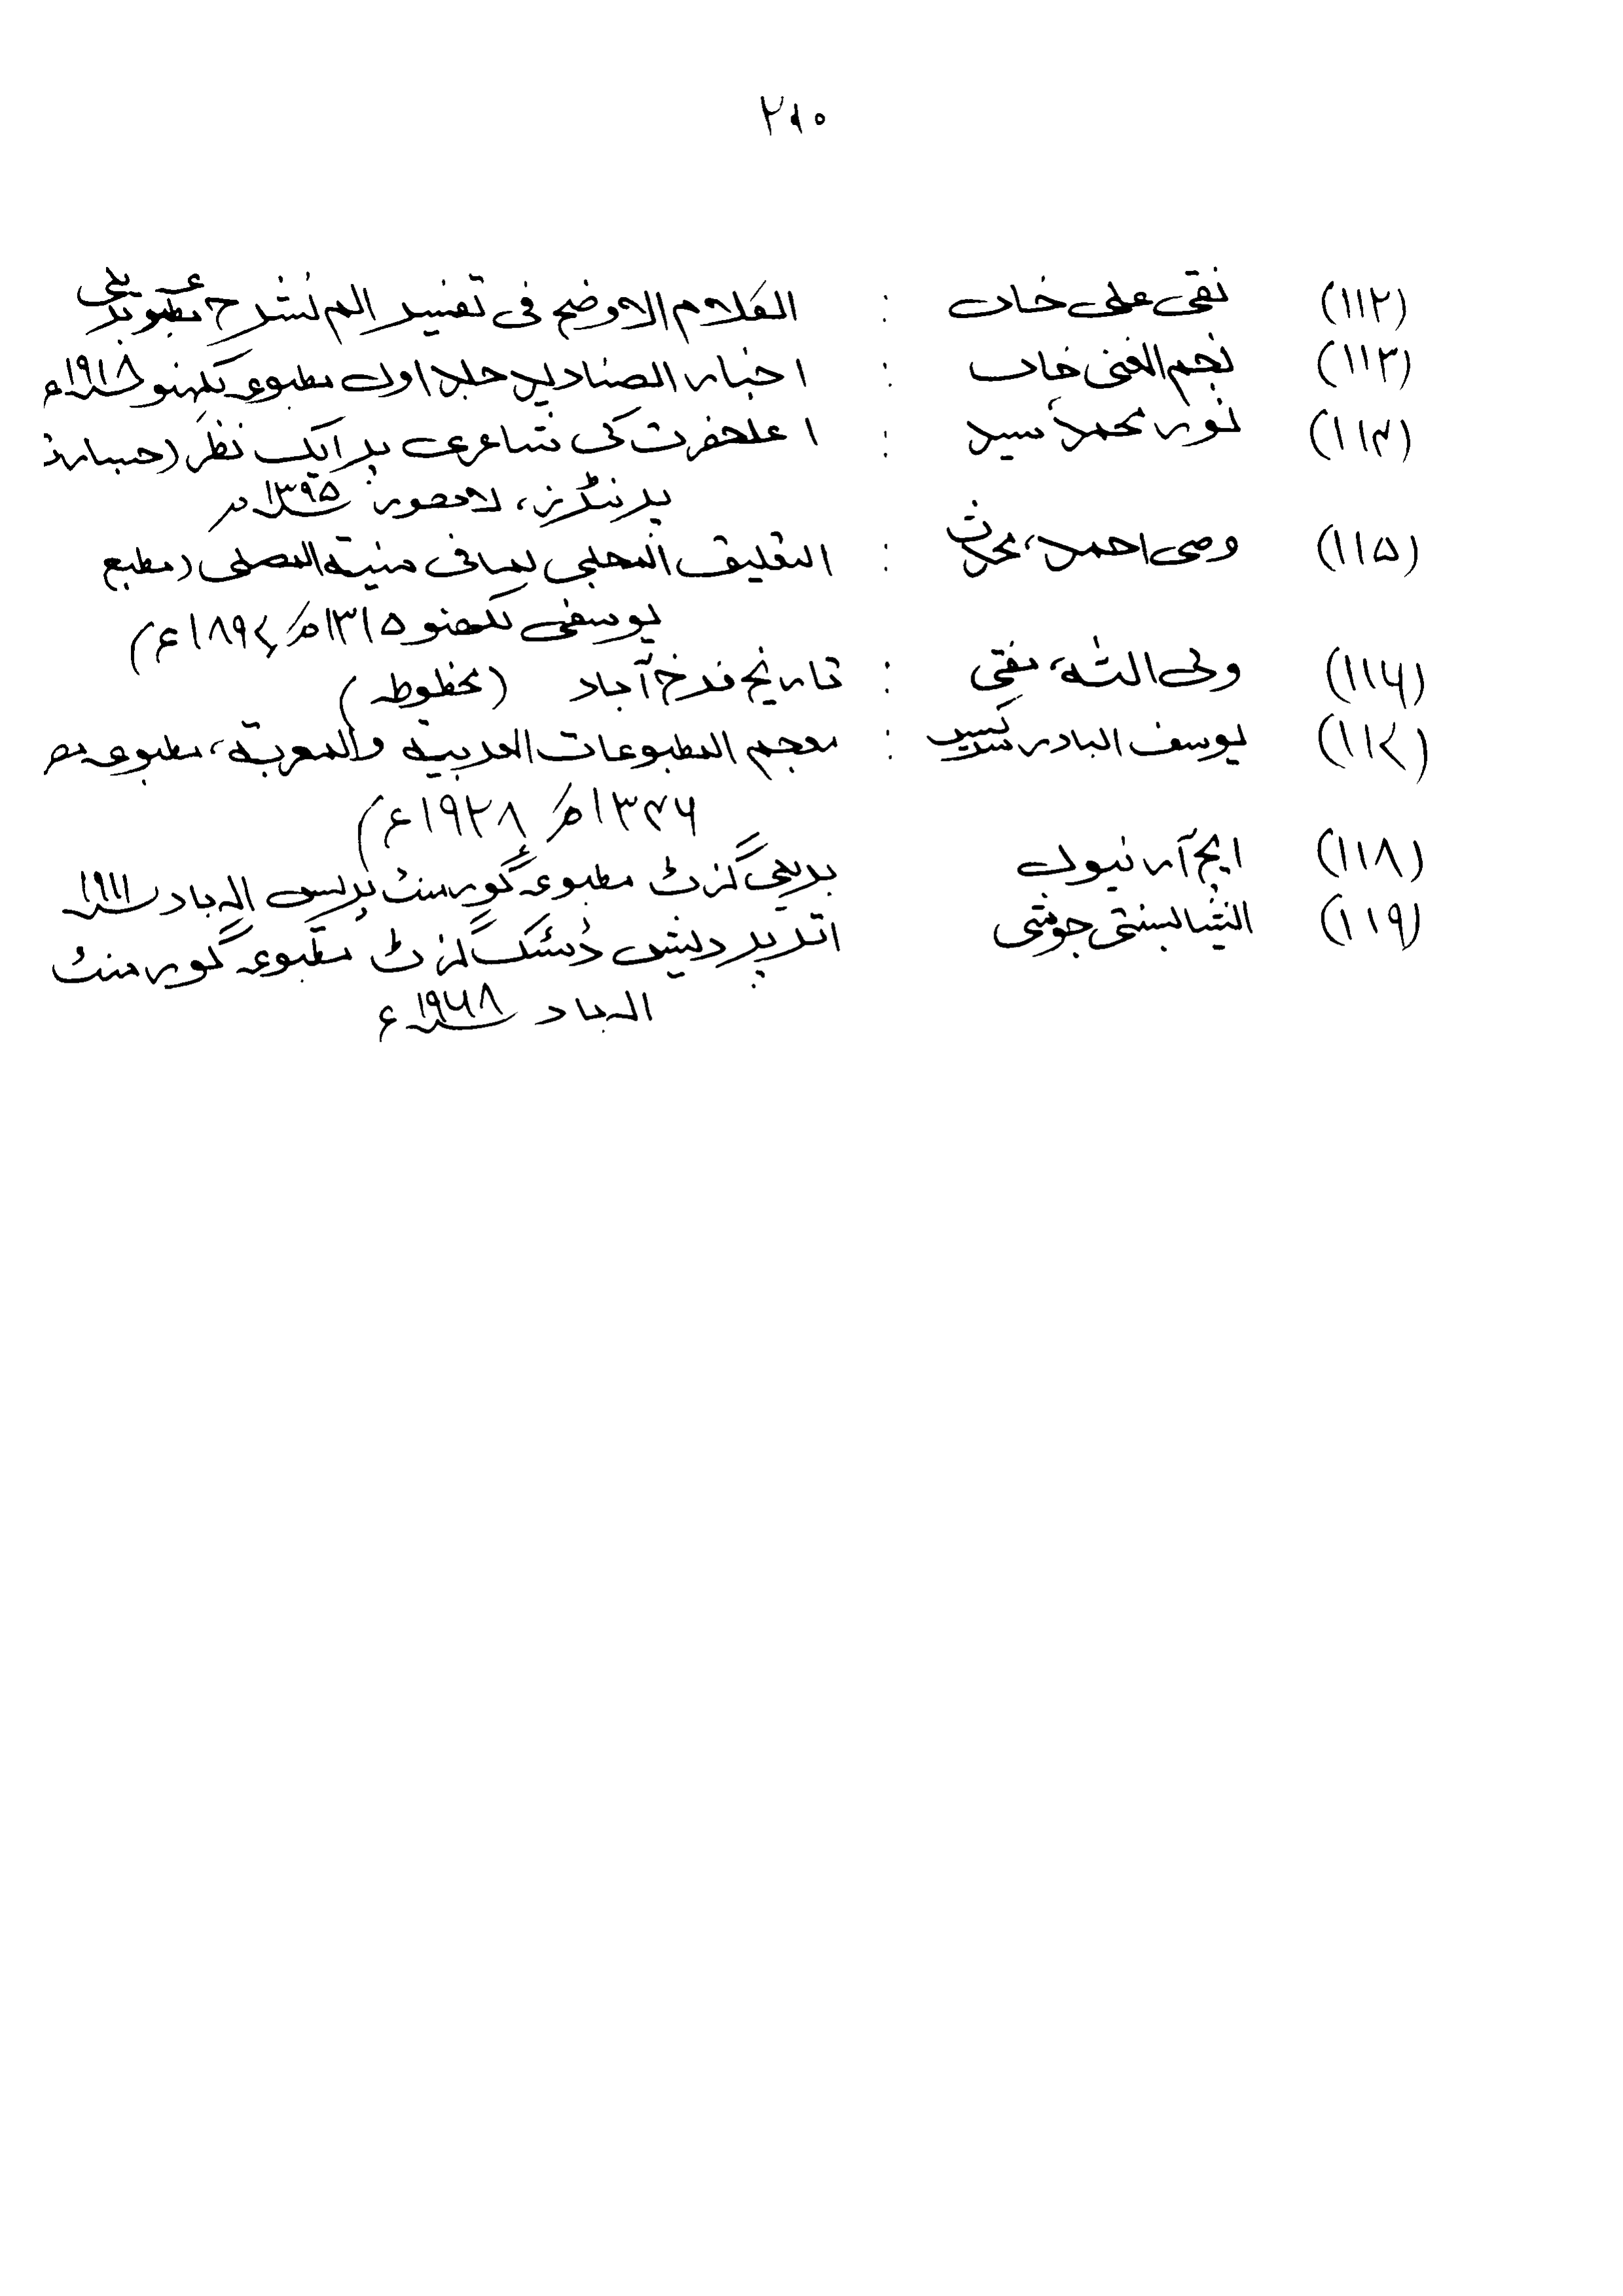 ۲۱۰
(۱۱۲) نقی علی خاں : الکلام الاوضح فی تفسیر الم نشرح مطبوعہ بریلی
(۱۱۳) نجم الغنی خاں : اخبار الصنادید جلد اول مطبوعہ لکہنو ۱۹۱۸ء
(۱۱۴) نور محمد، سید : اعلحضرت کی شاعری پر ایک نظر (
پرنٹرز، لاھور ۱۳۹۵ھ
(۱۱۵) وصی احمد، محدث : التعلیق المجلی لما فی منیۃ المصلی (مطبع
یوسفی لکھنو ۱۳۱۵ھ/۱۸۹۷ء)
(۱۱۶) ولی اللہ، مفتی : تاریخ فرخ آباد (مخطوطہ)
(۱۱۷) یوسف البادر سرکیس : معجم المطبوعات العربیۃ والمعربۃ، مطبوعہ مصر
۱۳۴۶ھ/ ۱۹۲۸ء)
(۱۱۸) ایچ آر نیول بریلی گزٹ مطبوعہ گورمنٹ پریس الہ باد ۱۹۱۱
(۱۱۹) ایشا بسنتی جوشی اتر پردیش ڈسٹک گزٹ مطبوعہ گورمنٹ
الہ باد ۱۹۶۸ء